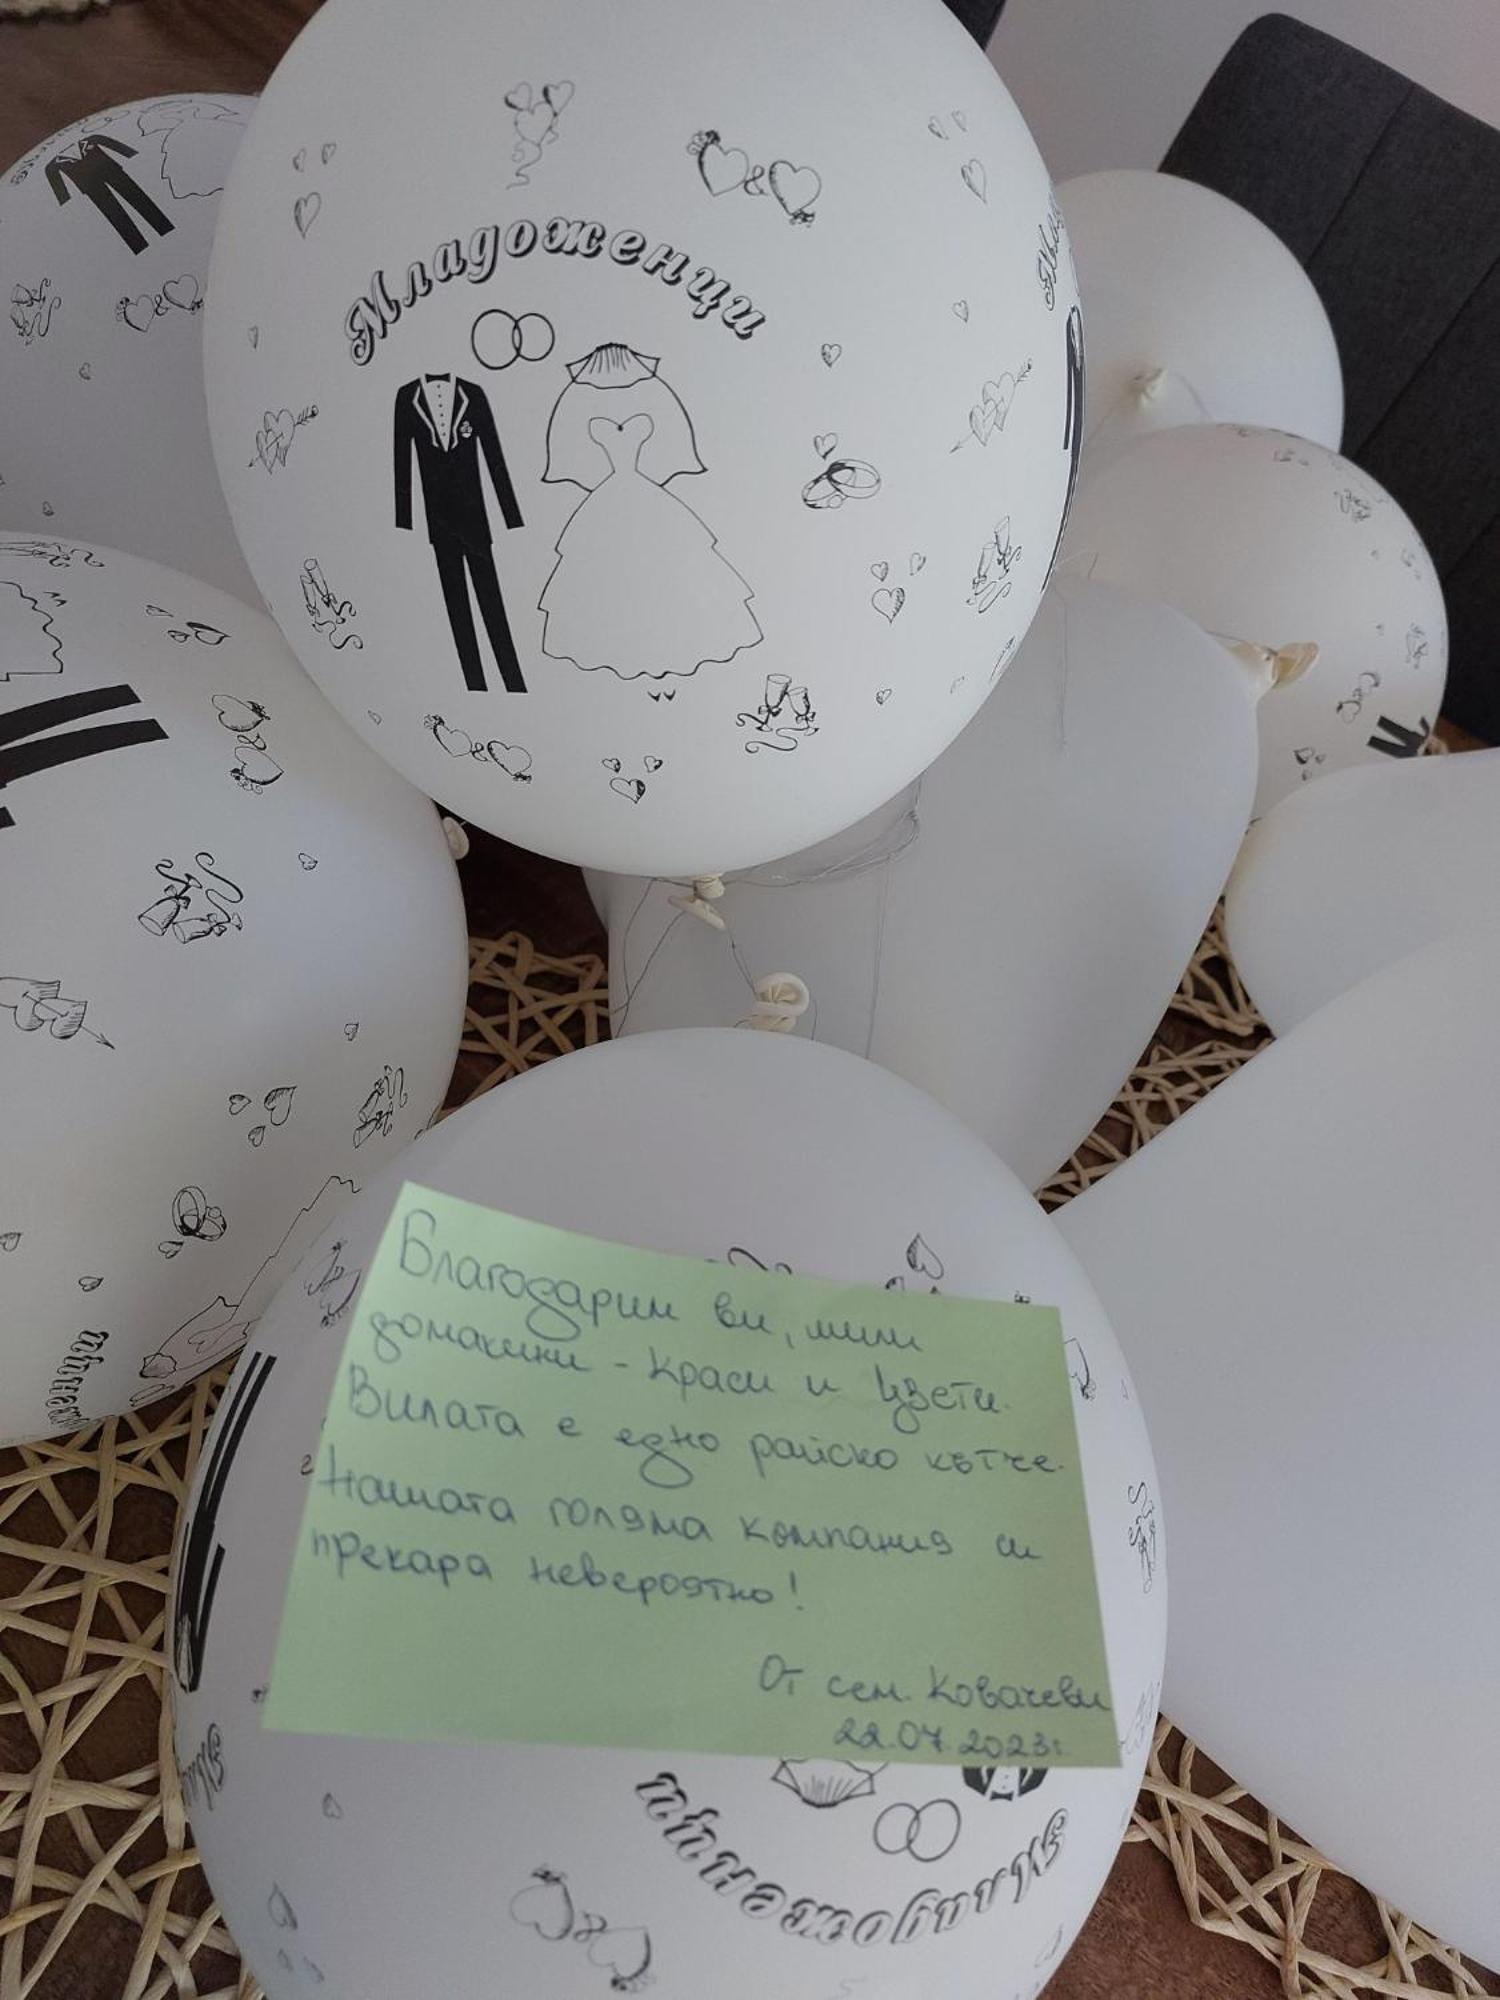 Младоженци
Благодарим ви, мили
домакини - Краси и Цвети.
Вилата е едно райско кътче.
Нашата голяма компания си
прекара невероятно!
От сем. Ковачеви
22.07.2023г.
Младоженци